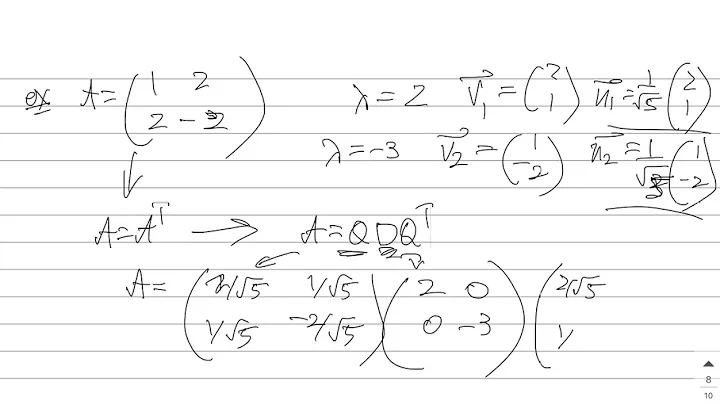 ex A = (1 2; 2 -2) λ = 2 v₁ = (2; 1) u₁ = 1/√5 (2; 1)
λ = -3 v₂ = (1; -2) u₂ = 1/√5 (1; -2)
A = Aᵀ → A = Q D Qᵀ
A = (2/√5 1/√5; 1/√5 -2/√5) (2 0; 0 -3) (2/√5; 1/
8
10